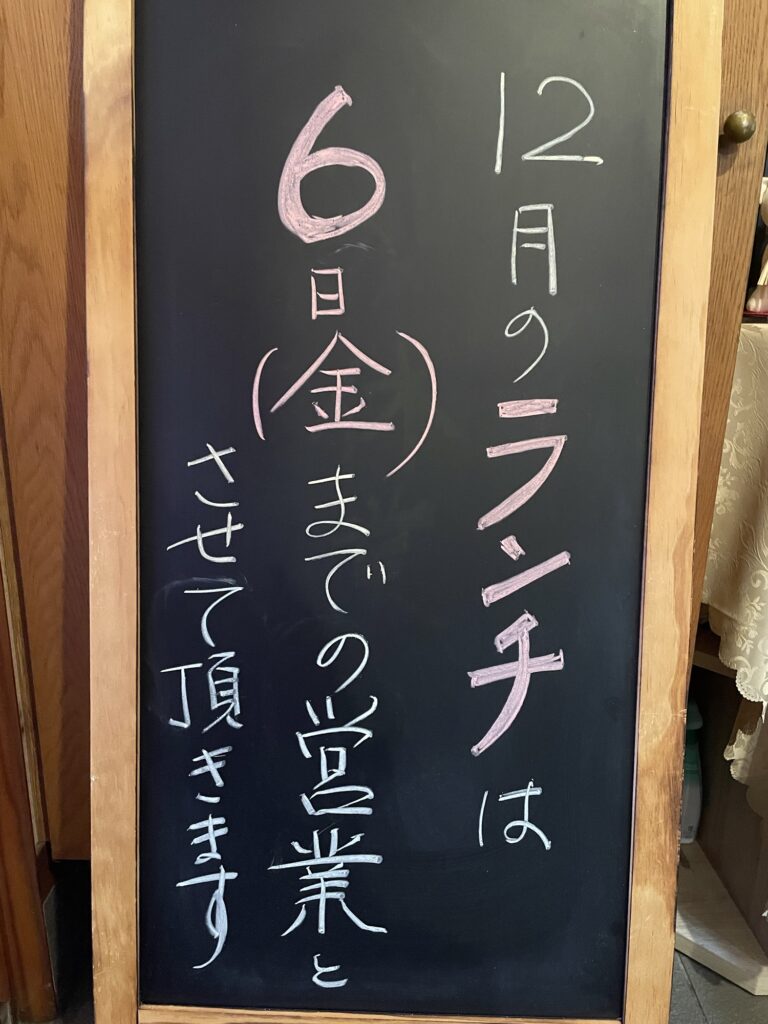 12月のランチは
6日(金)までの営業と
させて頂きます